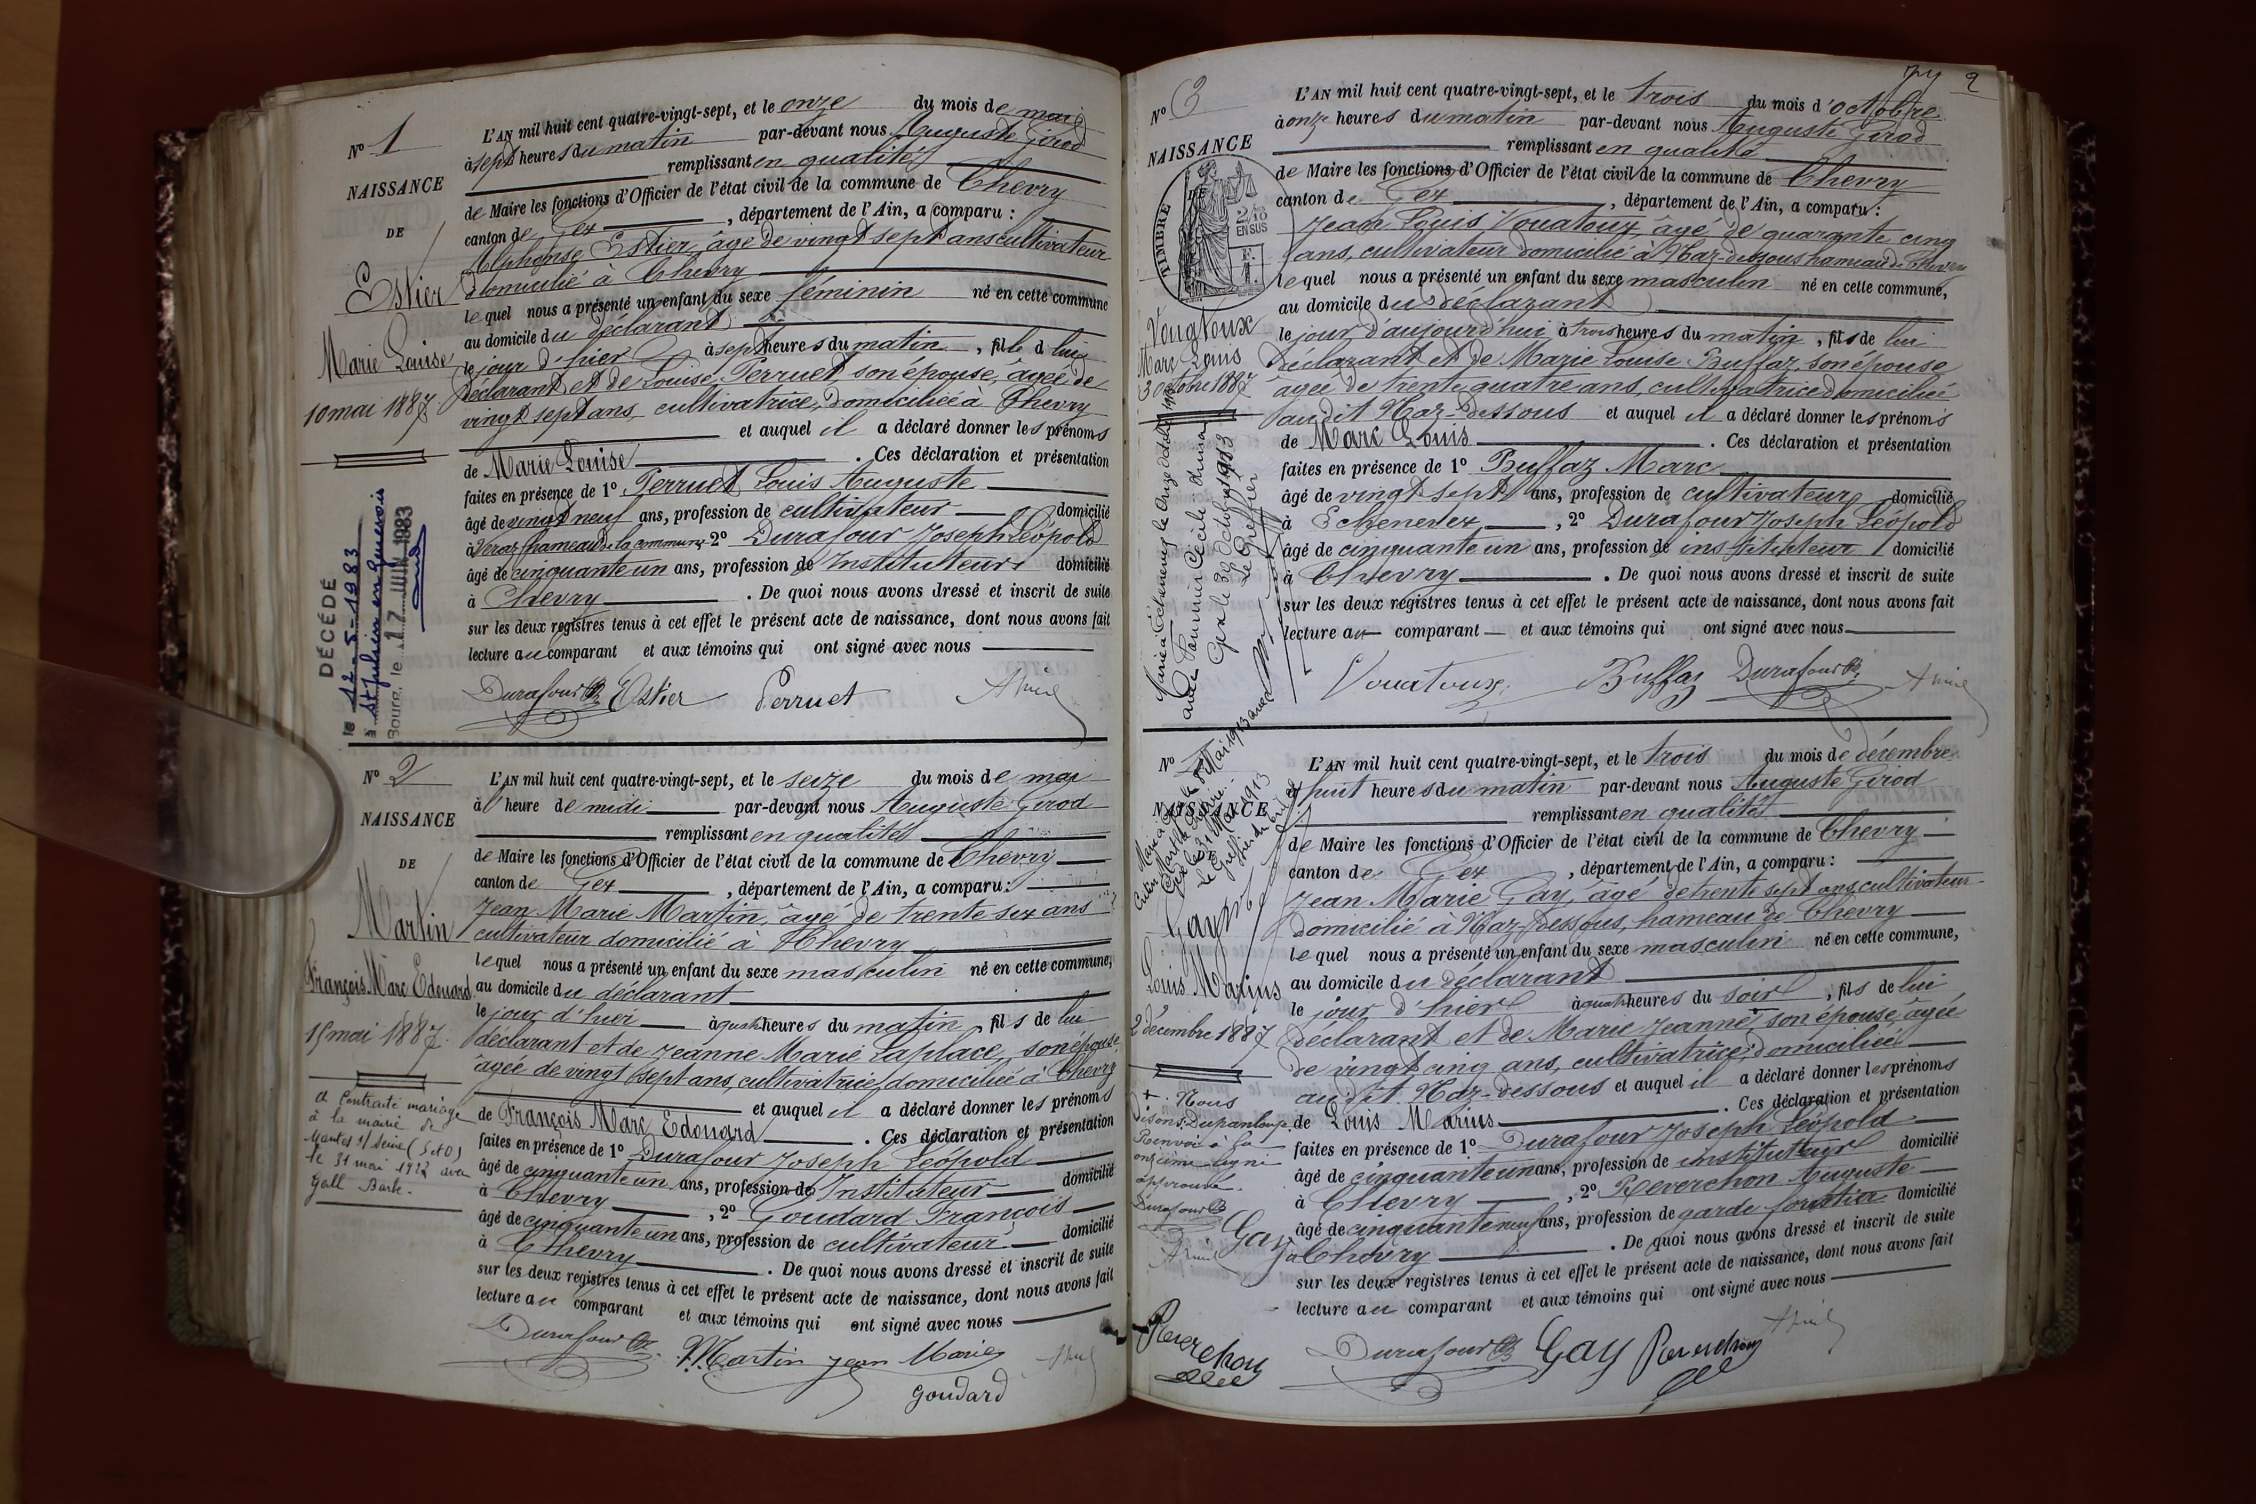 N° 1
NAISSANCE
DE
Estier
Marie Louise
10 mai 1887.
DÉCÉDÉ
le 12-5-1983
à St Julien en Genevois
Bourg, le 17 JUIN 1983
L'AN mil huit cent quatre-vingt-sept, et le onze du mois de mai
à sept heures du matin par-devant nous Auguste Girod
remplissant en qualité
de Maire les fonctions d'Officier de l'état civil de la commune de Chevry
canton de Gex, département de l'Ain, a comparu :
Alphonse Estier, âgé de vingt sept ans cultivateur
domicilié à Chevry
lequel nous a présenté un enfant du sexe féminin né en cette commune
au domicile du déclarant
le jour d'hier à sept heures du matin, fille d lui
déclarant et de Louise Perruet, son épouse, âgée de
vingt sept ans, cultivatrice, domiciliée à Chevry
et auquel il a déclaré donner les prénoms
de Marie Louise. Ces déclaration et présentation
faites en présence de 1° Perruet Louis Auguste
âgé de vingt neuf ans, profession de cultivateur domicilié
à Veraz hameau de la commune 2° Durafour Joseph Léopold
âgé de cinquante un ans, profession de Instituteur domicilié
à Chevry. De quoi nous avons dressé et inscrit de suite
sur les deux registres tenus à cet effet le présent acte de naissance, dont nous avons fait
lecture au comparant et aux témoins qui ont signé avec nous
Durafour Estier Perruet
N° 2
NAISSANCE
DE
Martin
François Marc Edouard
15 mai 1887.
a Contracté mariage
à la mairie de
Mantes s/ Seine (S et O)
le 31 mai 1912 avec
Gall Barbe.
L'AN mil huit cent quatre-vingt-sept, et le seize du mois de mai
à l'heure de midi par-devant nous Auguste Girod
remplissant en qualité
de Maire les fonctions d'Officier de l'état civil de la commune de Chevry
canton de Gex, département de l'Ain, a comparu :
Jean Marie Martin, âgé de trente six ans
cultivateur domicilié à Chevry
lequel nous a présenté un enfant du sexe masculin né en cette commune,
au domicile du déclarant
le jour d'hier à quatre heures du matin, fils de lui
déclarant et de Jeanne Marie Laplace, son épouse
âgée de vingt sept ans, cultivatrice, domiciliée à Chevry
et auquel il a déclaré donner les prénoms
de François Marc Edouard. Ces déclaration et présentation
faites en présence de 1° Durafour Joseph Léopold
âgé de cinquante un ans, profession de Instituteur domicilié
à Chevry, 2° Goudard François
âgé de cinquante un ans, profession de cultivateur domicilié
à Chevry. De quoi nous avons dressé et inscrit de suite
sur les deux registres tenus à cet effet le présent acte de naissance, dont nous avons fait
lecture au comparant et aux témoins qui ont signé avec nous
Durafour Martin Jean Marie
Goudard
2
N° 3
NAISSANCE
TIMBRE
2/10
EN SUS
Vouatoux
Marc Louis
3 octobre 1887
Marié à Echenevex le onze octobre
avec Fournier Cécile
Gex le 30 octobre 1913
Le Greffier
L'AN mil huit cent quatre-vingt-sept, et le trois du mois d'octobre
à onze heures du matin par-devant nous Auguste Girod
remplissant en qualité
de Maire les fonctions d'Officier de l'état civil de la commune de Chevry
canton de Gex, département de l'Ain, a comparu :
Jean Louis Vouatoux, âgé de quarante cinq
ans, cultivateur domicilié à Naz-dessous hameau de Chevry
lequel nous a présenté un enfant du sexe masculin né en cette commune,
au domicile du déclarant
le jour d'aujourd'hui à trois heures du matin, fils de lui
déclarant et de Marie Louise Buffaz, son épouse
âgée de trente quatre ans, cultivatrice domiciliée
audit Naz-dessous et auquel il a déclaré donner les prénoms
de Marc Louis. Ces déclaration et présentation
faites en présence de 1° Buffaz Marc
âgé de vingt sept ans, profession de cultivateur domicilié
à Echenevex, 2° Durafour Joseph Léopold
âgé de cinquante un ans, profession de instituteur domicilié
à Chevry. De quoi nous avons dressé et inscrit de suite
sur les deux registres tenus à cet effet le présent acte de naissance, dont nous avons fait
lecture au comparant et aux témoins qui ont signé avec nous
Vouatoux Buffaz Durafour
N°
NAISSANCE
Gay
Louis Marius
2 décembre 1887
+ Nous
disons: Dupanloup
Renvoi à la
onzième ligne
approuvé.
Durafour
Gay
Reverchon
L'AN mil huit cent quatre-vingt-sept, et le trois du mois de décembre
à huit heures du matin par-devant nous Auguste Girod
remplissant en qualité
de Maire les fonctions d'Officier de l'état civil de la commune de Chevry
canton de Gex, département de l'Ain, a comparu :
Jean Marie Gay, âgé de trente sept ans cultivateur
domicilié à Naz-dessous, hameau de Chevry
lequel nous a présenté un enfant du sexe masculin né en cette commune,
au domicile du déclarant
le jour d'hier à quatre heures du soir, fils de lui
déclarant et de Marie Jeanne +, son épouse, âgée
de vingt cinq ans, cultivatrice, domiciliée
audit Naz-dessous et auquel il a déclaré donner les prénoms
de Louis Marius. Ces déclaration et présentation
faites en présence de 1° Durafour Joseph Léopold
âgé de cinquante un ans, profession de instituteur domicilié
à Chevry, 2° Reverchon Auguste
âgé de cinquante neuf ans, profession de garde forestier domicilié
à Chevry. De quoi nous avons dressé et inscrit de suite
sur les deux registres tenus à cet effet le présent acte de naissance, dont nous avons fait
lecture au comparant et aux témoins qui ont signé avec nous
Durafour Gay Reverchon